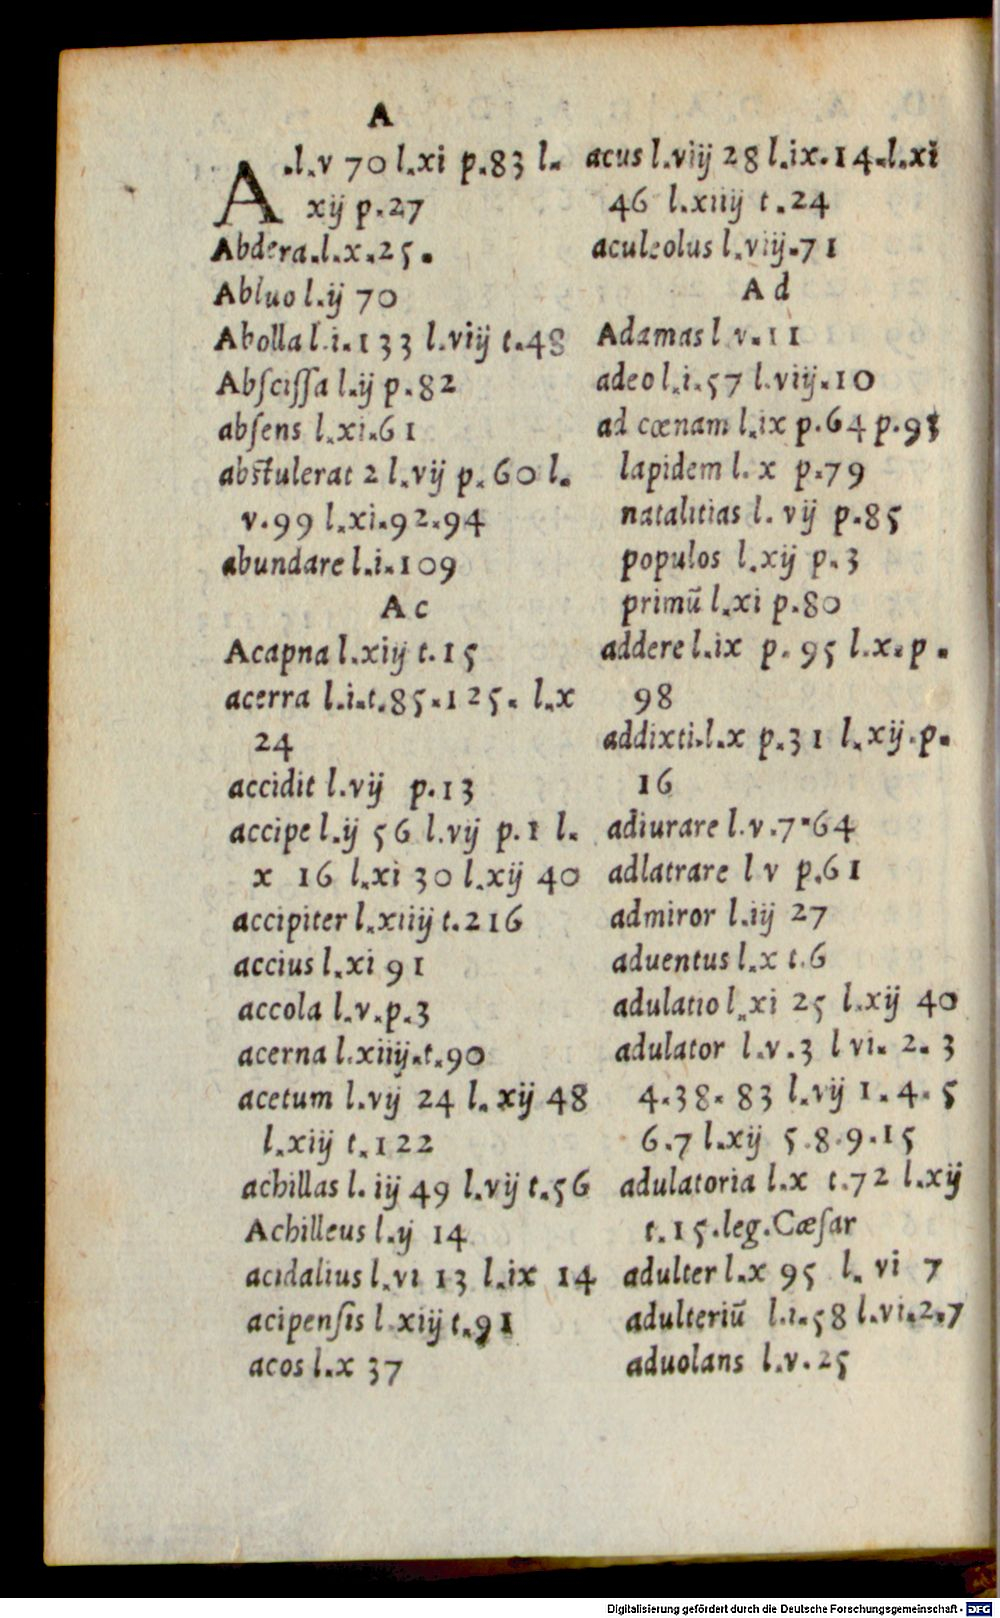 A
A .l.v 70 l.xi p.83 l.
xij p.27
Abdera.l.x.25.
Abluo l.ij 70
Abolla l.i.133 l.viij t.48
Abſciſſa l.ij p.82
abſens l.xi.61
abſtulerat 2 l.vij p.60 l.
v.99 l.xi.92.94
abundare l.i.109
Ac
Acapna l.xiij t.15
acerra l.i.t.85.125. l.x
24
accidit l.vij p.13
accipe l.ij 56 l.vij p.1 l.
x 16 l.xi 30 l.xij 40
accipiter l.xiiij t.216
accius l.xi 91
accola l.v.p.3
acerna l.xiiij.t.90
acetum l.vij 24 l.xij 48
l.xiij t.122
achillas l.iij 49 l.vij t.56
Achilleus l.ij 14
acidalius l.vi 13 l.ix 14
acipenſis l.xiij t.91
acos l.x 37
acus l.viij 28 l.ix.14.l.xi
46 l.xiiij t.24
aculeolus l.viij.71
Ad
Adamas l v.11
adeo l.i.57 l.viij.10
ad cœnam l.ix p.64 p.93
lapidem l.x p.79
natalitias l.vij p.85
populos l.xij p.3
primū l.xi p.80
addere l.ix p.95 l.x.p.
98
addixti.l.x p.31 l.xij.p.
16
adiurare l.v.7.64
adlatrare l v p.61
admiror l.iij 27
aduentus l.x t.6
adulatio l.xi 25 l.xij 40
adulator l.v.3 l vi. 2. 3
4.38. 83 l.vij 1. 4. 5
6.7 l.xij 5.8.9.15
adulatoria l.x t.72 l.xij
t.15.leg.Cæſar
adulter l.x 95 l. vi 7
adulteriū l.i.58 l.vi.2.7
aduolans l.v.25
Digitalisierung gefördert durch die Deutsche Forschungsgemeinschaft - DFG